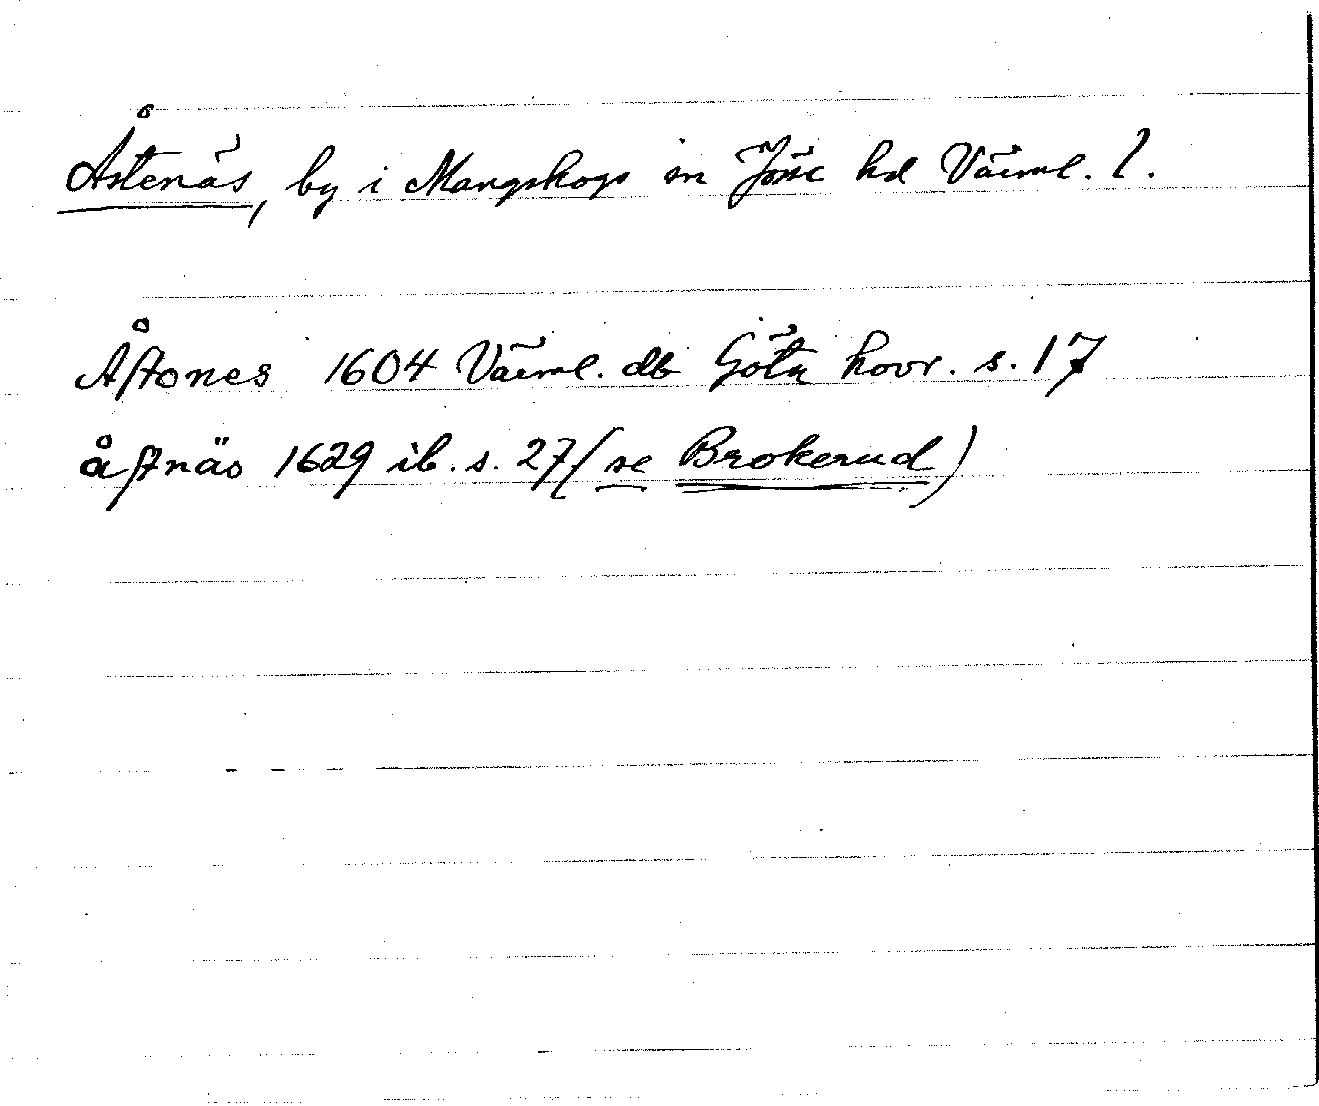 Åstenäs, by i Mangskogs sn Jösse hd Värml. l.
Åstones 1604 Värml. db Göta hovr. s. 17
åstnäs 1629 ib. s. 27 (se Brokerud)